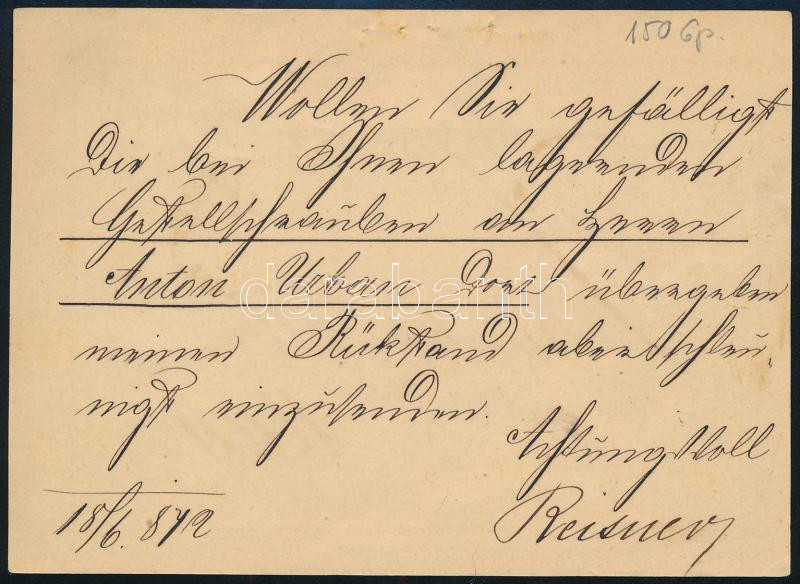 150 Gp.
Wollen Sie gefälligst
Die bei Ihnen lagernden
Gestellschrauben an Herrn
Anton Urban dort übergeben
meinen Rückstand aber schleu„
nigst einzusenden.
Achtungsvoll
Reisner
18/6. 872
darabanth